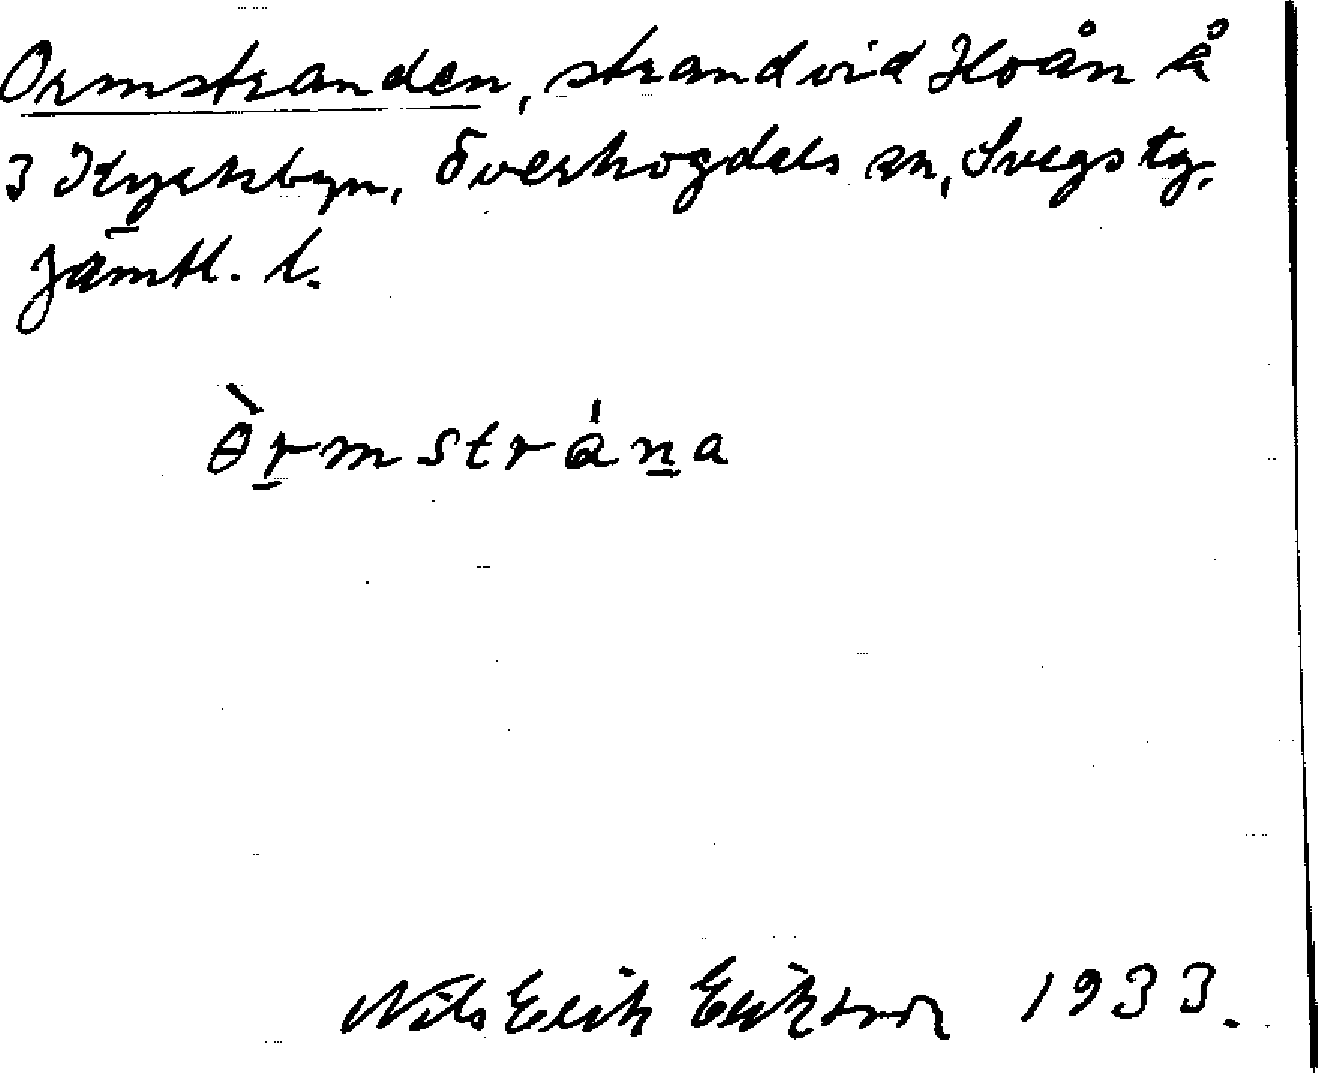 Ormstranden, strand vid Hoån å
3 Kyrkbyn, Överhogdals sn, Svegs tg,
Jämtl. l.
Ɵ̀rmstrána
Nils Erik Eriksson 1933.